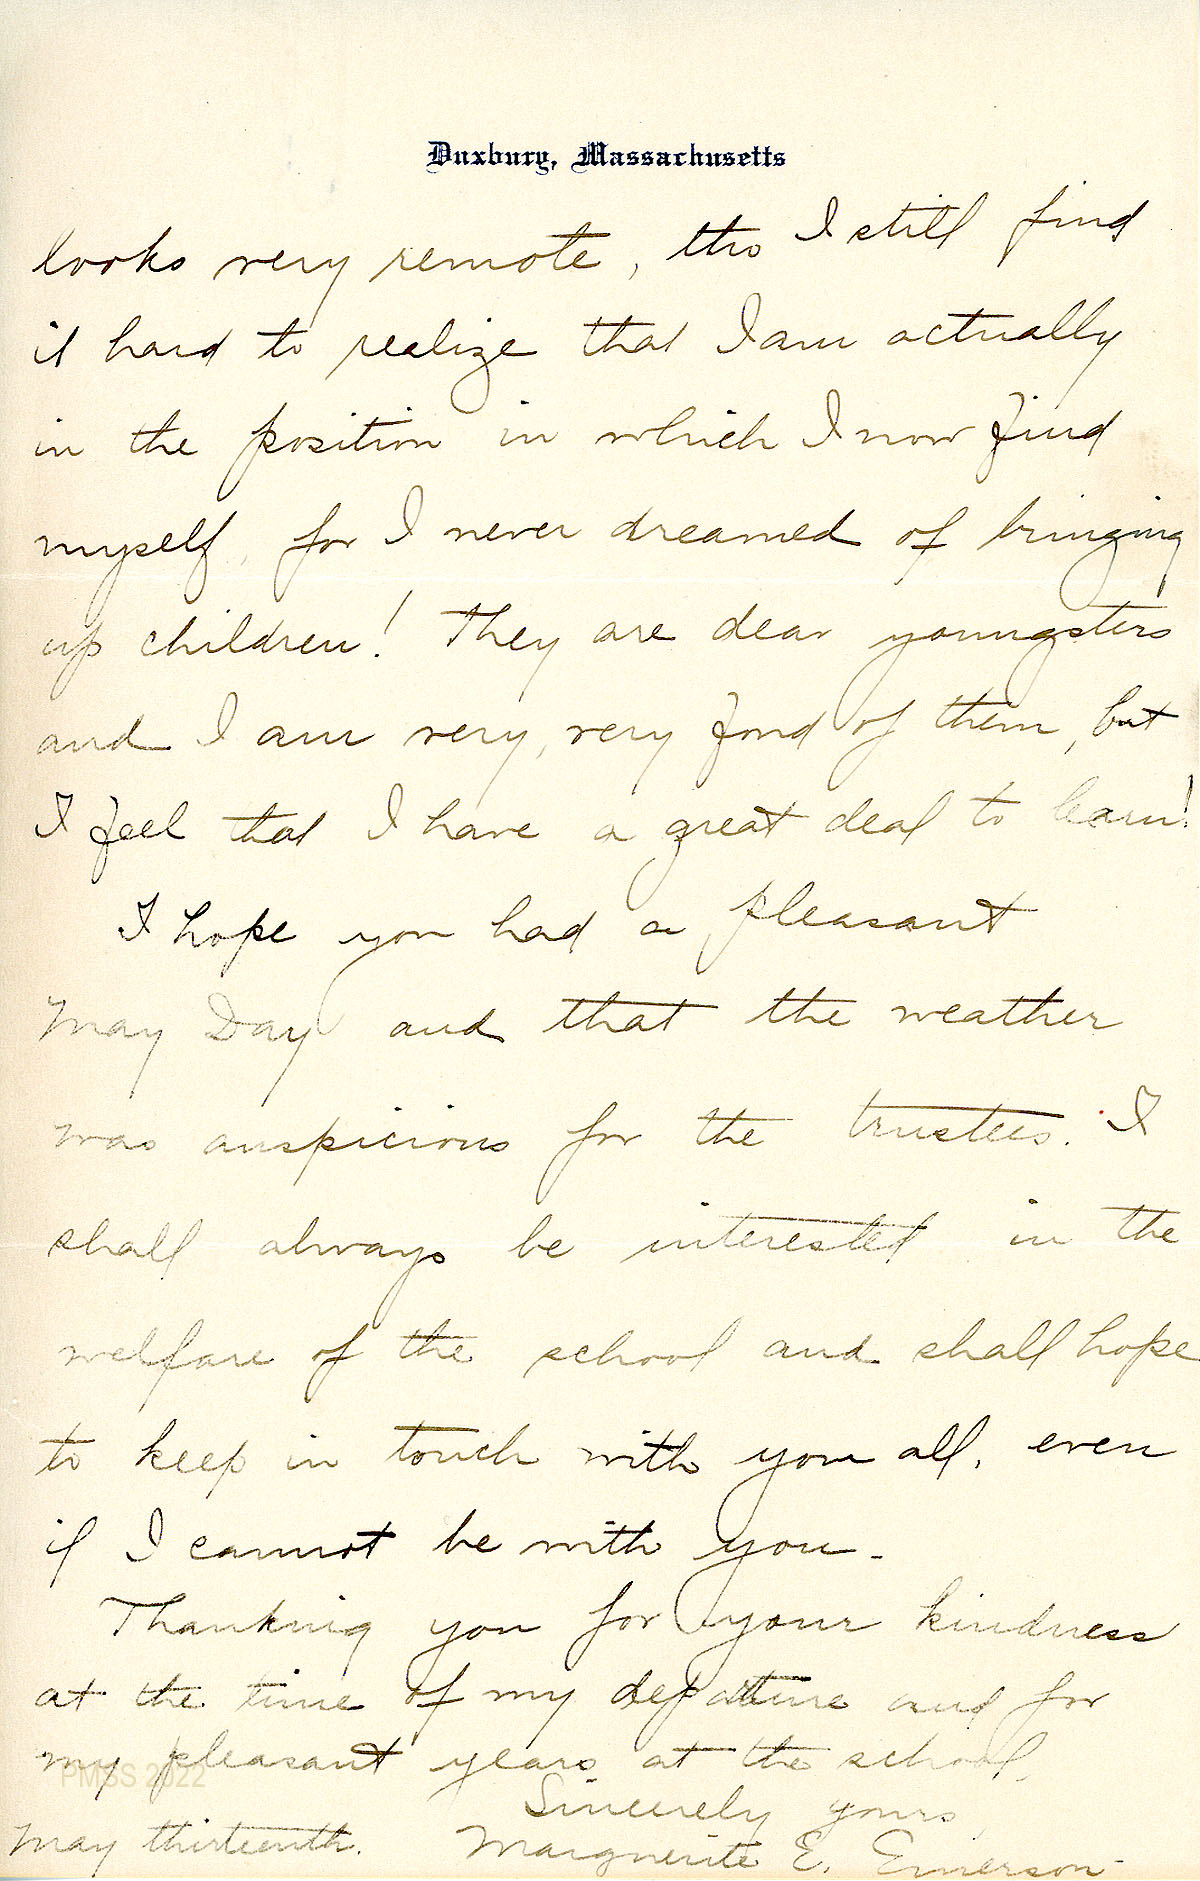 Duxbury, Massachusetts
looks very remote, tho I still find
it hard to realize that I am actually
in the position in which I now find
myself, for I never dreamed of bringing
up children! They are dear youngsters
and I am very, very fond of them, but
I feel that I have a great deal to learn!
I hope you had a pleasant
May Day and that the weather
was auspicious for the trustees. I
shall always be interested in the
welfare of the school and shall hope
to keep in touch with you all, even
if I cannot be with you.
Thanking you for your kindness
at the time of my departure and for
my pleasant years at the school.
PMSS 2022
Sincerely yours,
May thirteenth. Marguerite E. Emerson